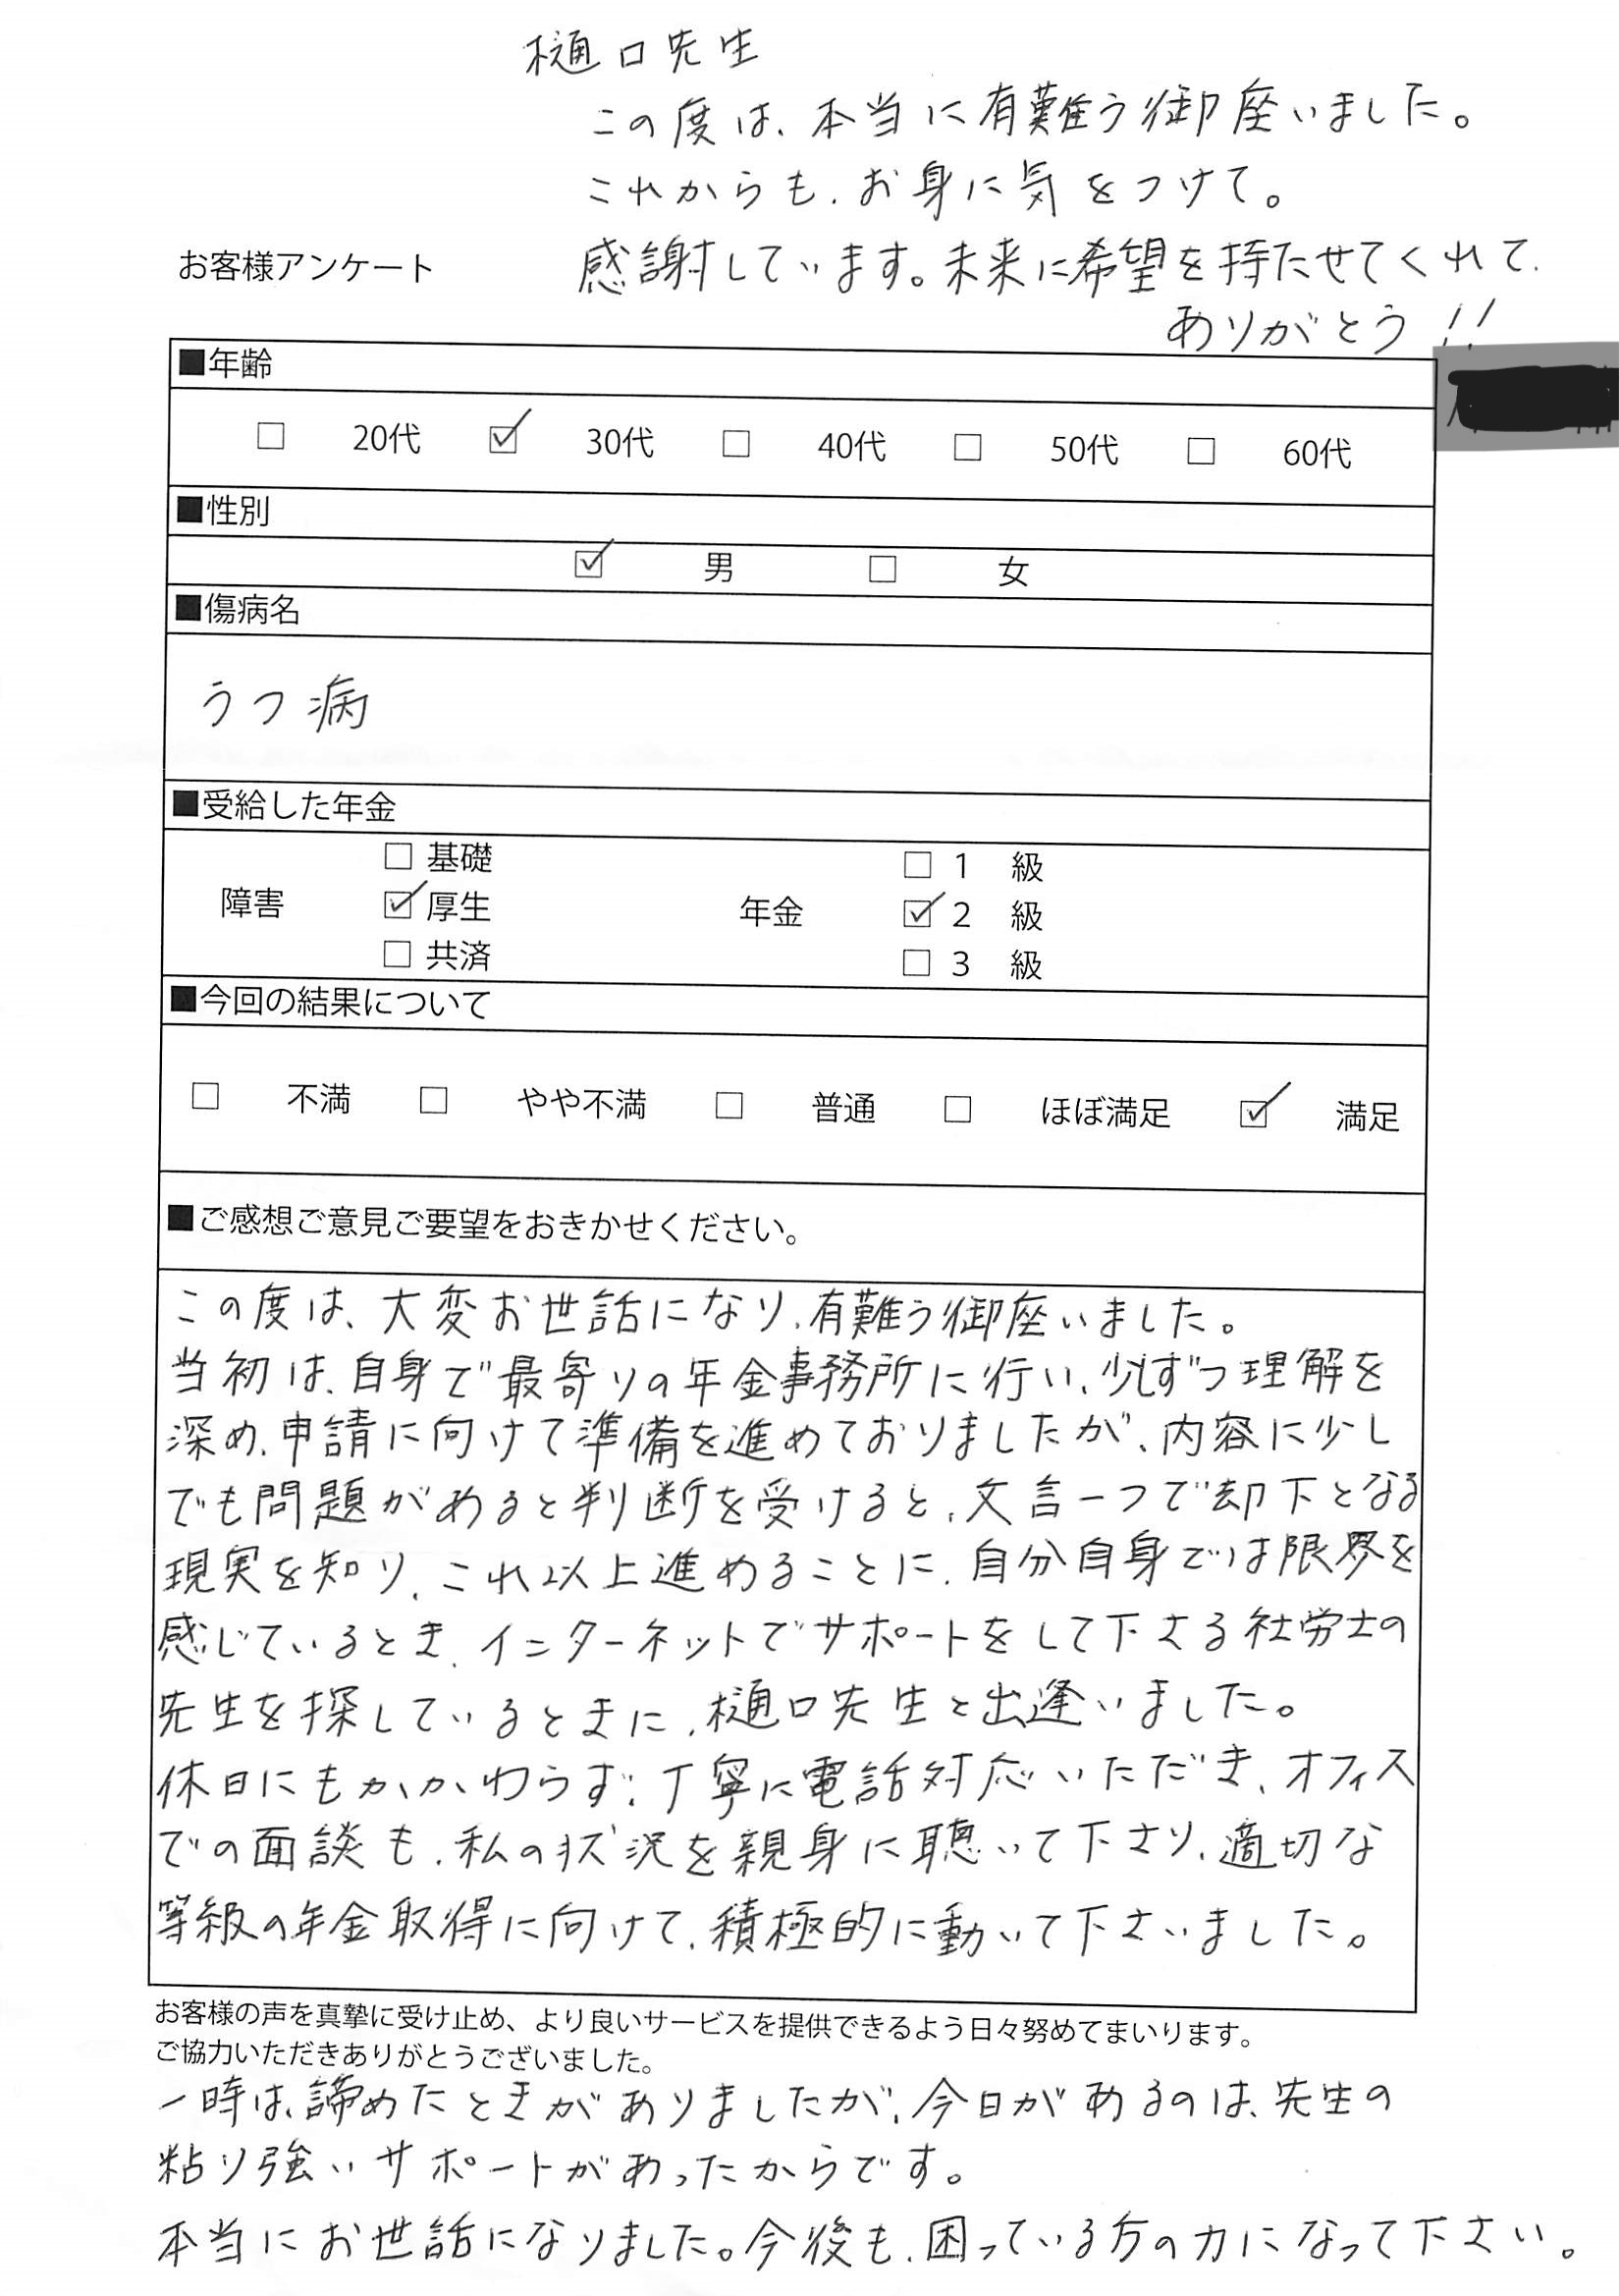 樋口先生
この度は、本当に有難う御座いました。
これからも、お身に気をつけて。
感謝しています。未来に希望を持たせてくれて、
ありがとう!!
お客様アンケート
■年齢
□ 20代 ☑ 30代 □ 40代 □ 50代 □ 60代
■性別
☑ 男 □ 女
■傷病名
うつ病
■受給した年金
□ 基礎 □ 1 級
障害 ☑ 厚生 年金 ☑ 2 級
□ 共済 □ 3 級
■今回の結果について
□ 不満 □ やや不満 □ 普通 □ ほぼ満足 ☑ 満足
■ご感想ご意見ご要望をおきかせください。
この度は、大変お世話になり、有難う御座いました。
当初は、自身で最寄りの年金事務所に行い、少しずつ理解を
深め、申請に向けて準備を進めておりましたが、内容に少し
でも問題があると判断を受けると、文言一つで却下となる
現実を知り、これ以上進めることに、自分自身では限界を
感じているとき、インターネットでサポートをして下さる社労士の
先生を探しているときに、樋口先生と出逢いました。
休日にもかかわらず、丁寧に電話対応いただき、オフィス
での面談も、私の状況を親身に聴いて下さり、適切な
等級の年金取得に向けて、積極的に動いて下さいました。
お客様の声を真摯に受け止め、より良いサービスを提供できるよう日々努めてまいります。
ご協力いただきありがとうございました。
一時は、諦めたときがありましたが、今日があるのは、先生の
粘り強いサポートがあったからです。
本当にお世話になりました。今後も、困っている方の力になって下さい。